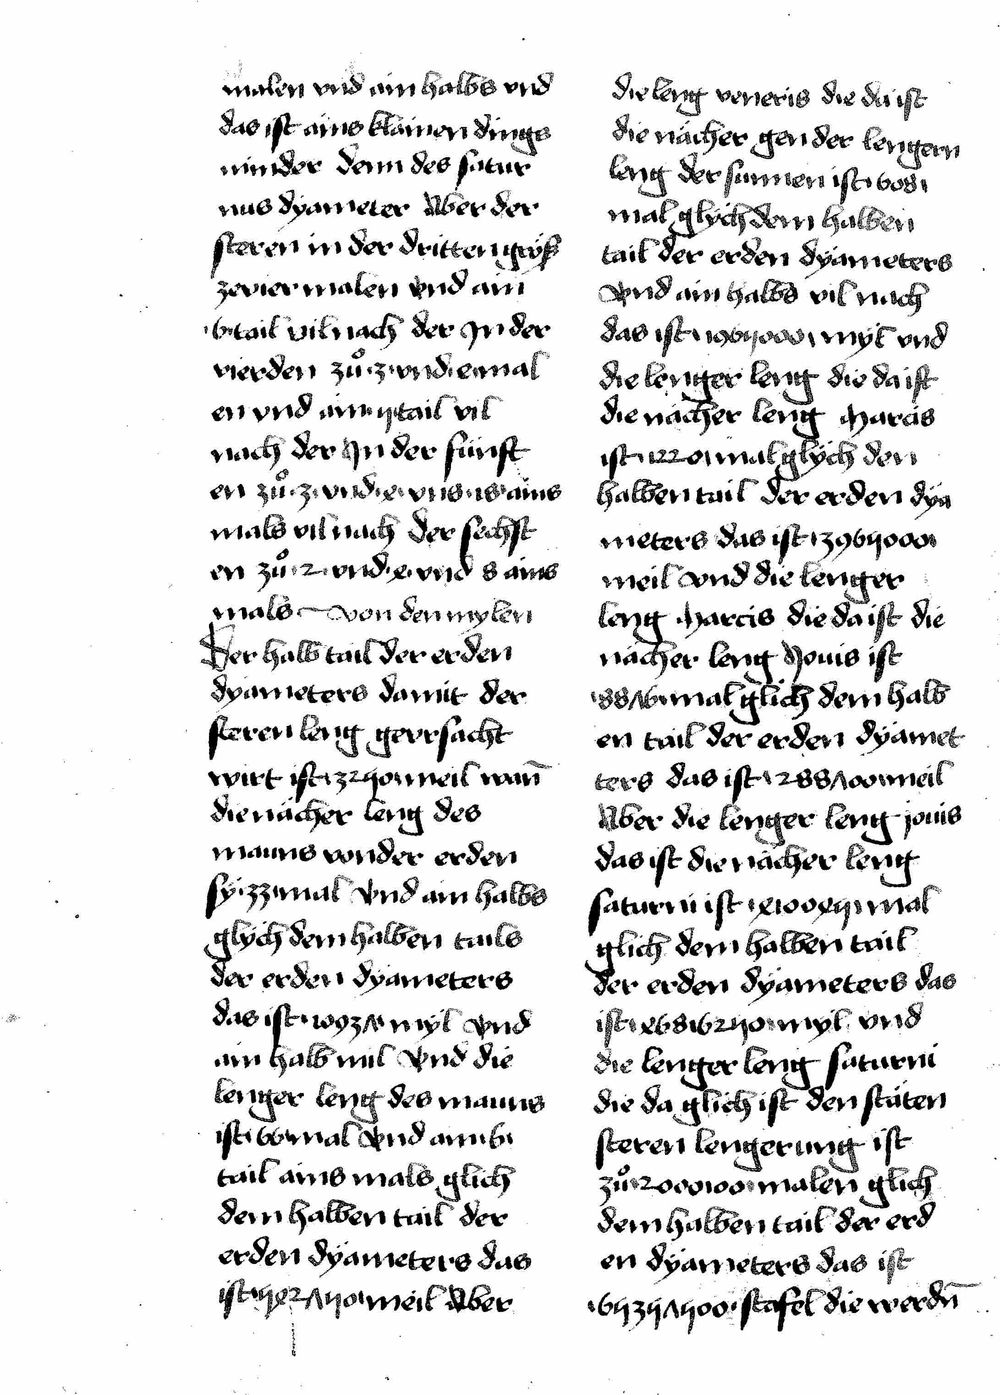 malen vnd ain halbs vnd
das ist ains klainen dings
minder denn des satur
nus dyameter Aber der
steren in der dritten größ
zevier malen vnd ain
·6·tail vil nach der Jn der
vierden zů·3·vnd·e·mal
en vnd ain· tail vil
nach der Jn der fúnft
en zů·3·vnd·e·vns· ains
mals vil nach der sechst
en zů·2·vnd·e·vnd 8 ains
mals von den mylen
Der halb tail der erden
dyameters damit der
steren leng gevrsacht
wirt ist·3240·meil wan̄
die nácher leng des
mauns von der erden
sy·33·mal vnd ain halbs
glych dem halben tails
der erden dyameters
das ist myl vnd
ain halb mil vnd die
lenger leng des mauns
ist·66·mal vnd ain·6·
tail ains mals glich
dem halben tail der
erden dyameters das
ist meil Aber
die leng veneris die da ist
die nácher gen der lengern
leng der sunnen ist
mal glych dem halben
tail der erden dyameters
vnd ain halbs vil nach
das ist myl vnd
die lenger leng die da ist
die nácher leng Marcis
ist·1220·mal glych den
halben tail der erden dya
meters das ist
meil vnd die lenger
leng Marcis die da ist die
nácher leng Jouis ist
·88 6·mal glich dem halb
en tail der erden dyamet
ters das ist meil
Aber die lenger leng jouis
das ist die nácher leng
saturni ist mal
glich dem halben tail
der erden dyameters das
ist myl vnd
die lenger leng saturni
die da glich ist den stäten
steren lengerung ist
zů malen glich
dem halben tail der erd
en dyameters das ist
stafel die werdn̄